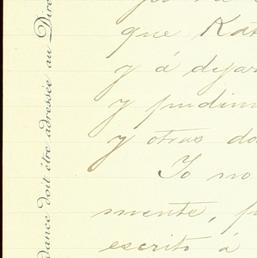 que
y á dejar
y
y otras
Yo no
mente,
escrito á
dance doit être adressée au Dire